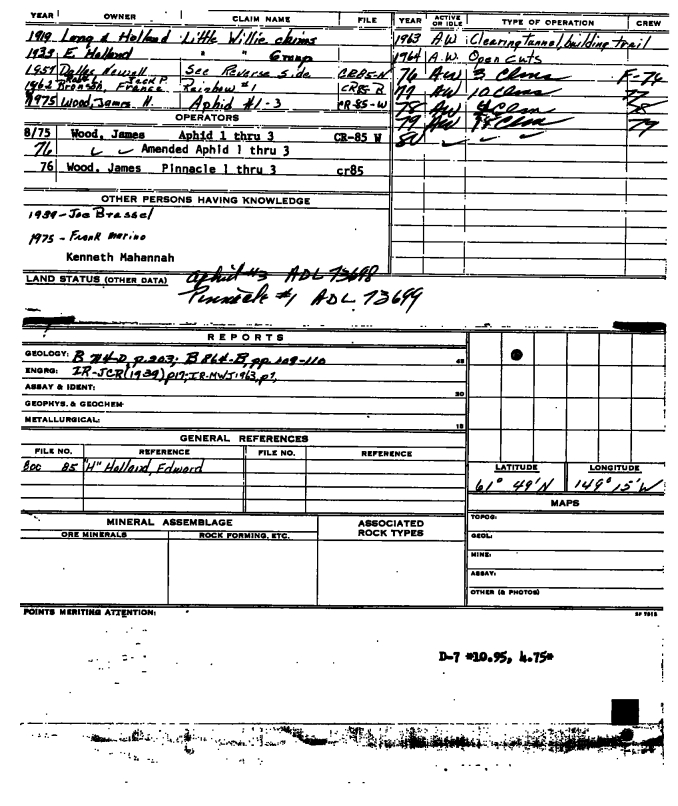 YEAR OWNER CLAIM NAME FILE YEAR ACTIVE OR IDLE TYPE OF OPERATION CREW
1919 Long & Holland Little Willie claims
1939 E. Holland " " Group
1957 Newell See Reverse side CR85-N
1962 Bronson, France Jack P. Rainbow #1 CR85-B
1975 Wood, James H. Aphid #1-3 CR85-W
1963 A.W. Clearing tunnel, building trail
1964 A.W. Open cuts
76 AW 3 Clms F-76
77 AW 10 Clms 77
78 AW Clm 78
79 AW Clm 79
80 ✓ ✓ ✓
OPERATORS
8/75 Wood, James Aphid 1 thru 3 CR-85 W
76 Amended Aphid 1 thru 3
76 Wood, James Pinnacle 1 thru 3 cr85
OTHER PERSONS HAVING KNOWLEDGE
1939 - Joe Brassel
1975 - Frank Marino
Kenneth Mahannah
LAND STATUS (OTHER DATA) Aphid #3 ADL 73698
Pinnacle #1 ADL 73699
REPORTS
GEOLOGY: B 714-D, p.203; B 864-B, pp. 109-110 45
ENGRG: IR-JCR(1939) p17; IR-MWJ 1963, p7,
ASSAY & IDENT: 30
GEOPHYS. & GEOCHEM
METALLURGICAL: 15
GENERAL REFERENCES
FILE NO. REFERENCE FILE NO. REFERENCE
85 "H" Holland, Edward
LATITUDE LONGITUDE
61° 49'N 149° 15'W
MAPS
TOPOG:
GEOL:
MINE:
ASSAY:
OTHER (& PHOTOS)
MINERAL ASSEMBLAGE ASSOCIATED ROCK TYPES
ORE MINERALS ROCK FORMING, ETC.
POINTS MERITING ATTENTION:
D-7 *10.95, 4.75*